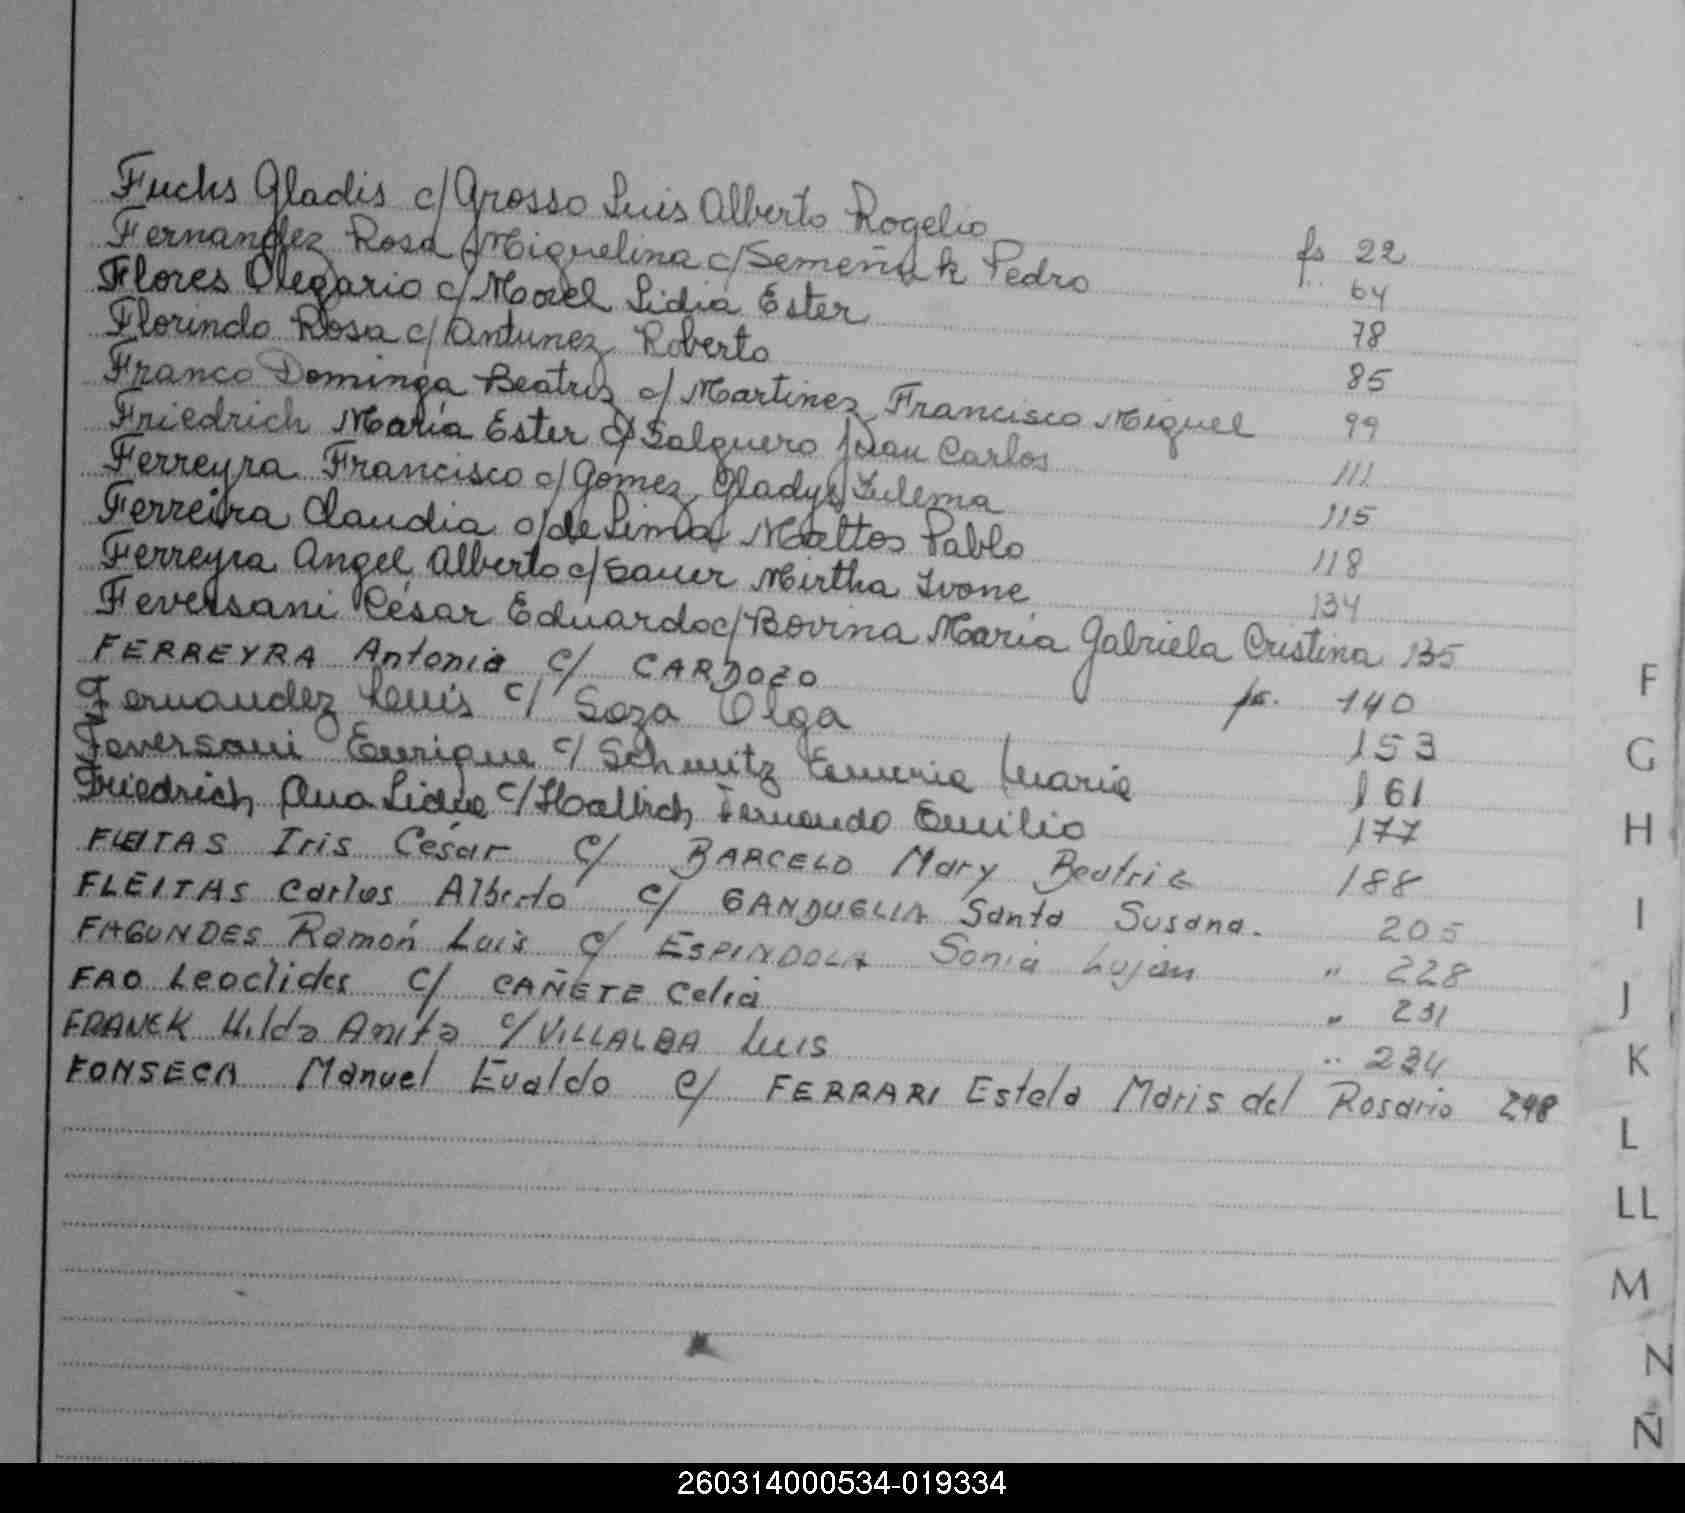 Fuchs Gladis c/ Grosso Luis Alberto Rogelio fs 22
Fernandez Rosa Miguelina c/ Semeñuk Pedro " 64
Flores Olegario c/ Morel Lidia Ester 78
Florindo Rosa c/ Antunez Roberto 85
Franco Dominga Beatriz c/ Martinez Francisco Miguel 99
Friedrich María Ester c/ Salguero Juan Carlos 111
Ferreyra Francisco c/ Gomez Gladys Zulema 115
Ferreira Claudia c/ de Lima Mattos Pablo 118
Ferreyra Angel Alberto c/ Sauer Mirtha Ivone 134
Feversani César Eduardo c/ Bovina Maria Gabriela Cristina 135
FERREYRA Antonia c/ CARDOZO fs. 140
Fernandez Luis c/ Soza Olga 153
Feversani Enrique c/ Schmitz María 161
Friedrich Ana Lidia c/ Hallich Fernando Emilio 177
FLEITAS Iris César c/ BARCELO Mary Beatriz 188
FLEITAS Carlos Alberto c/ GANDUGLIA Santa Susana. 205
FAGUNDES Ramón Luis c/ ESPINDOLA Sonia Luján " 228
FAO Leoclides c/ CAÑETE Celia " 231
FRANEK Hilda Anita c/ VILLALBA Luis " 234
FONSECA Manuel Evaldo c/ FERRARI Estela Maris del Rosario 248
F
G
H
I
J
K
L
LL
M
N
Ñ
260314000534-019334